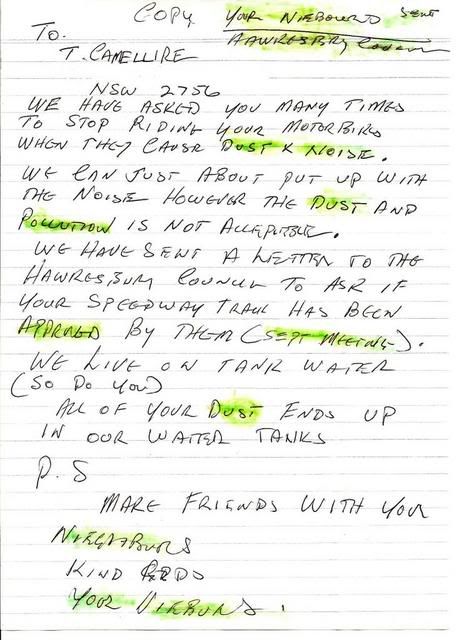 COPY YOUR NIEBOURS SENT
HAWKESBURY Council
TO.
T. CAMELLIRE
NSW 2756
WE HAVE ASKED YOU MANY TIMES
TO STOP RIDING YOUR MOTORBIKES
WHEN THEY CAUSE DUST & NOISE.
WE CAN JUST ABOUT PUT UP WITH
THE NOISE HOWEVER THE DUST AND
POLLUTION IS NOT ACCEPTIBLE.
WE HAVE SENT A LETTER TO THE
HAWKESBURY COUNCIL TO ASK IF
YOUR SPEEDWAY TRACK HAS BEEN
APPROVED BY THEM (SEPT MEETING).
WE LIVE ON TANK WATER
(SO DO YOU)
ALL OF YOUR DUST ENDS UP
IN OUR WATER TANKS
P.S
MAKE FRIENDS WITH YOUR
KIND RGDS
YOUR